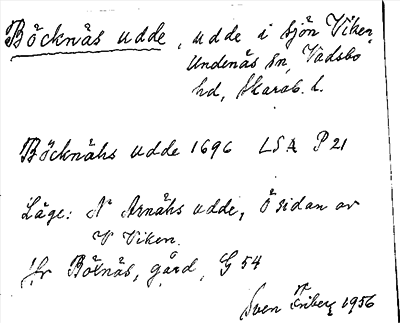 Böcknäs udde, udde i sjön Viken,
Undenäs sn, Vadsbo
hd, Skarab. l.
Böcknähs udde 1696 LSA P 21
Läge: N Arnähs udde, Ö sidan av
V Viken.
Jfr Bölnäs, gård, G 54
Sven Friberg 1956